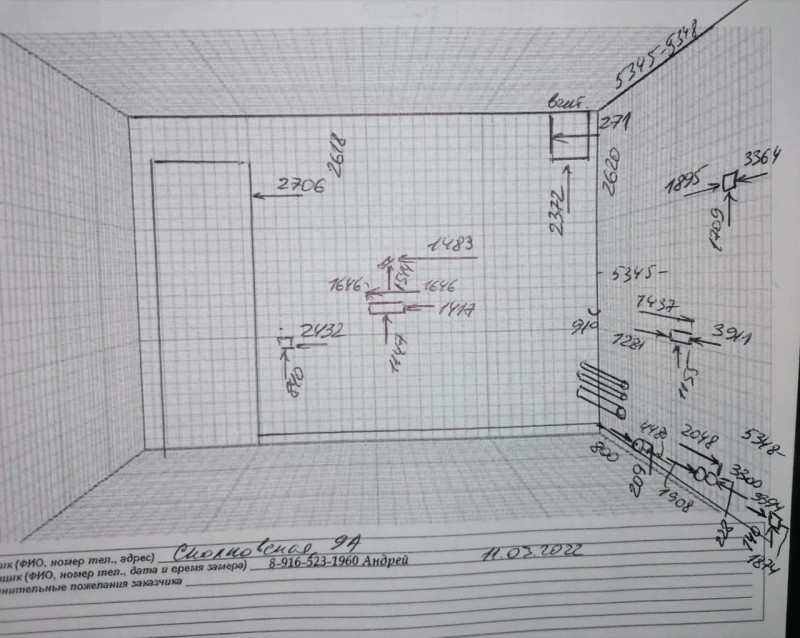 5345-5348
вент.
271
2618
2620
3364
1895
2706
2372
1709
1483
1511
5345-
1646
1646
1437
1417
910
2432
1281
3911
1447
1155
840
2048
5348-
800
448
3300
3394
209
1508
228
140
1874
ик (ФИО, номер тел., адрес) Сколковская 9А
щик (ФИО, номер тел., дата и время замера) 8-916-523-1960 Андрей 11.03.2022
нительные пожелания заказчика